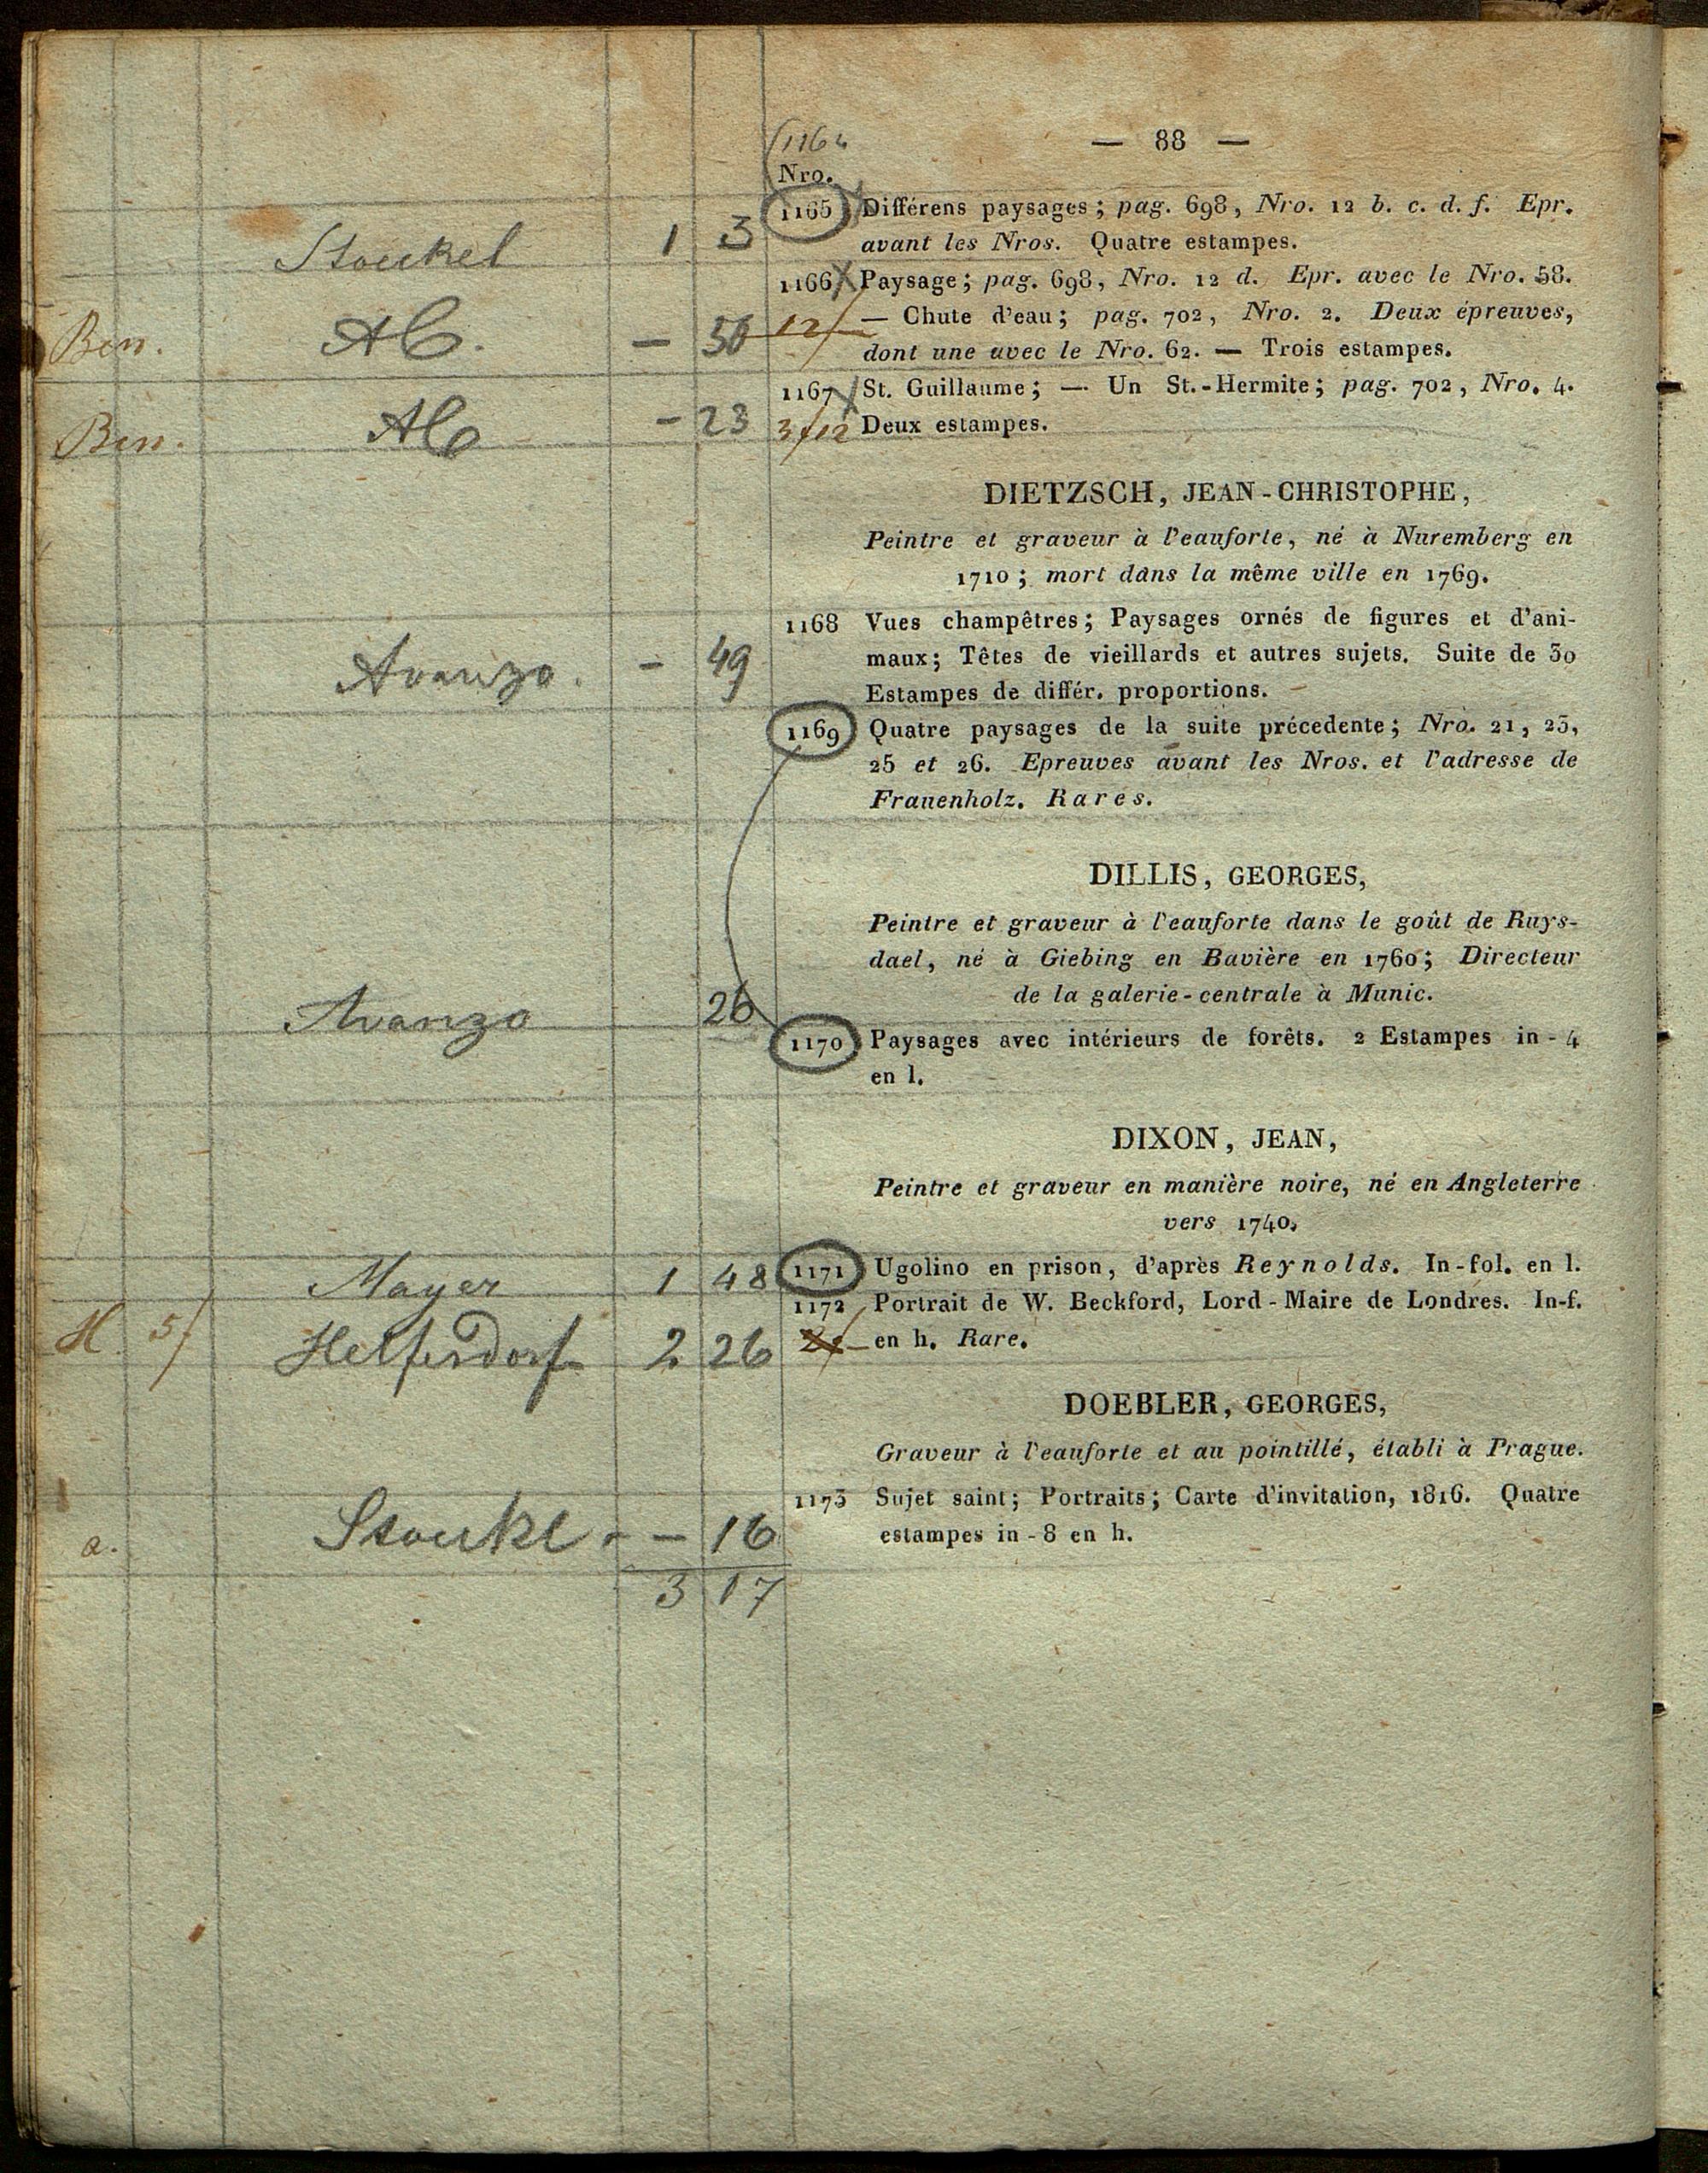 (1164
— 88 —
Nro.
1165 Différens paysages; pag. 698, Nro. 12 b. c. d. f. Epr.
Stoeckel 1 3 avant les Nros. Quatre estampes.
1166 Paysage; pag. 698, Nro. 12 d. Epr. avec le Nro. 58.
Ben. — 50 12/ — Chute d'eau; pag. 702, Nro. 2. Deux épreuves,
dont une avec le Nro. 62. — Trois estampes.
1167 St. Guillaume; — Un St.-Hermite; pag. 702, Nro. 4.
Ben. — 23 3/12 Deux estampes.
DIETZSCH, JEAN-CHRISTOPHE,
Peintre et graveur à l'eauforte, né à Nuremberg en
1710; mort dans la même ville en 1769.
1168 Vues champêtres; Paysages ornés de figures et d'ani-
Avanzo. — 49 maux; Têtes de vieillards et autres sujets. Suite de 30
Estampes de différ. proportions.
1169 Quatre paysages de la suite précedente; Nro. 21, 23,
25 et 26. Epreuves avant les Nros. et l'adresse de
Frauenholz. Rares.
DILLIS, GEORGES,
Peintre et graveur à l'eauforte dans le goût de Ruys-
dael, né à Giebing en Bavière en 1760; Directeur
de la galerie-centrale à Munic.
Avanzo 26 1170 Paysages avec intérieurs de forêts. 2 Estampes in-4
en l.
DIXON, JEAN,
Peintre et graveur en manière noire, né en Angleterre
vers 1740.
Mayer 1 48 1171 Ugolino en prison, d'après Reynolds. In-fol. en l.
1172 Portrait de W. Beckford, Lord-Maire de Londres. In-f.
H. 5/ Helfersdorf 2 26 en h. Rare.
DOEBLER, GEORGES,
Graveur à l'eauforte et au pointillé, établi à Prague.
1173 Sujet saint; Portraits; Carte d'invitation, 1816. Quatre
a. Stoeckl. — 16 estampes in-8 en h.
3 17